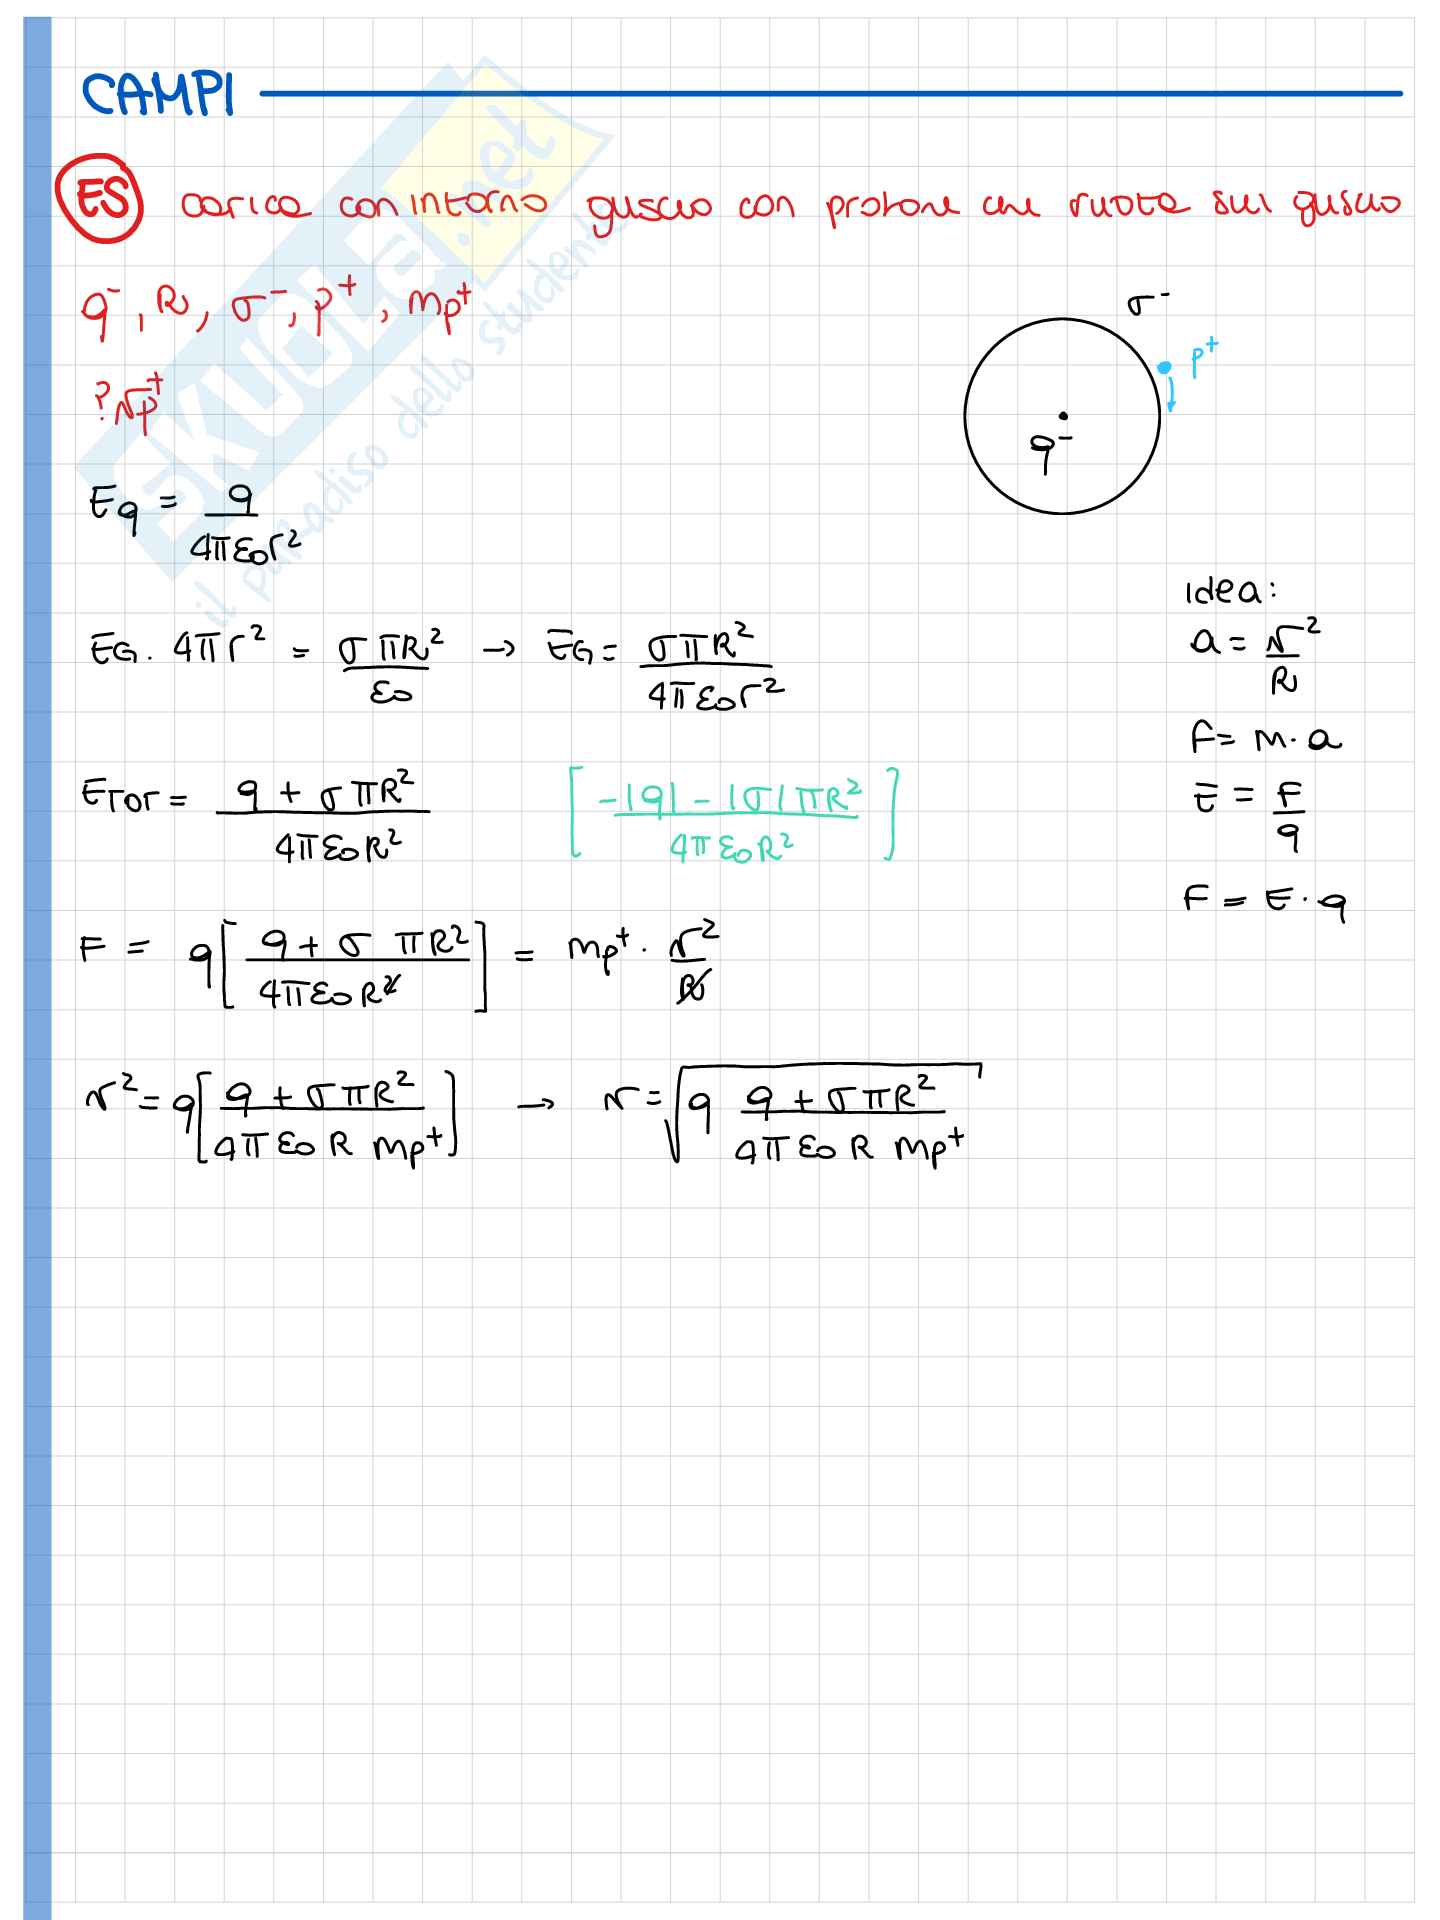 CAMPI
ES carica con intorno guscio con protone che ruota sul guscio
q⁻, R, σ⁻, p⁺, mp⁺
? vp⁺
σ⁻
p⁺
q⁻
Eq = q / 4πε₀r²
idea:
a = v² / R
EG · 4πr² = σπR² / ε₀ → EG = σπR² / 4πε₀r²
F = m · a
ETOT = q + σπR² / 4πε₀R² [ -|q| - |σ|πR² / 4πε₀R² ]
E = F / q
F = E · q
F = q [ q + σ πR² / 4πε₀R² ] = mp⁺ · v² / R
v² = q [ q + σπR² / 4πε₀ R mp⁺ ] → v = √ q q + σπR² / 4πε₀ R mp⁺
SKUOLA.net
il paradiso dello studente